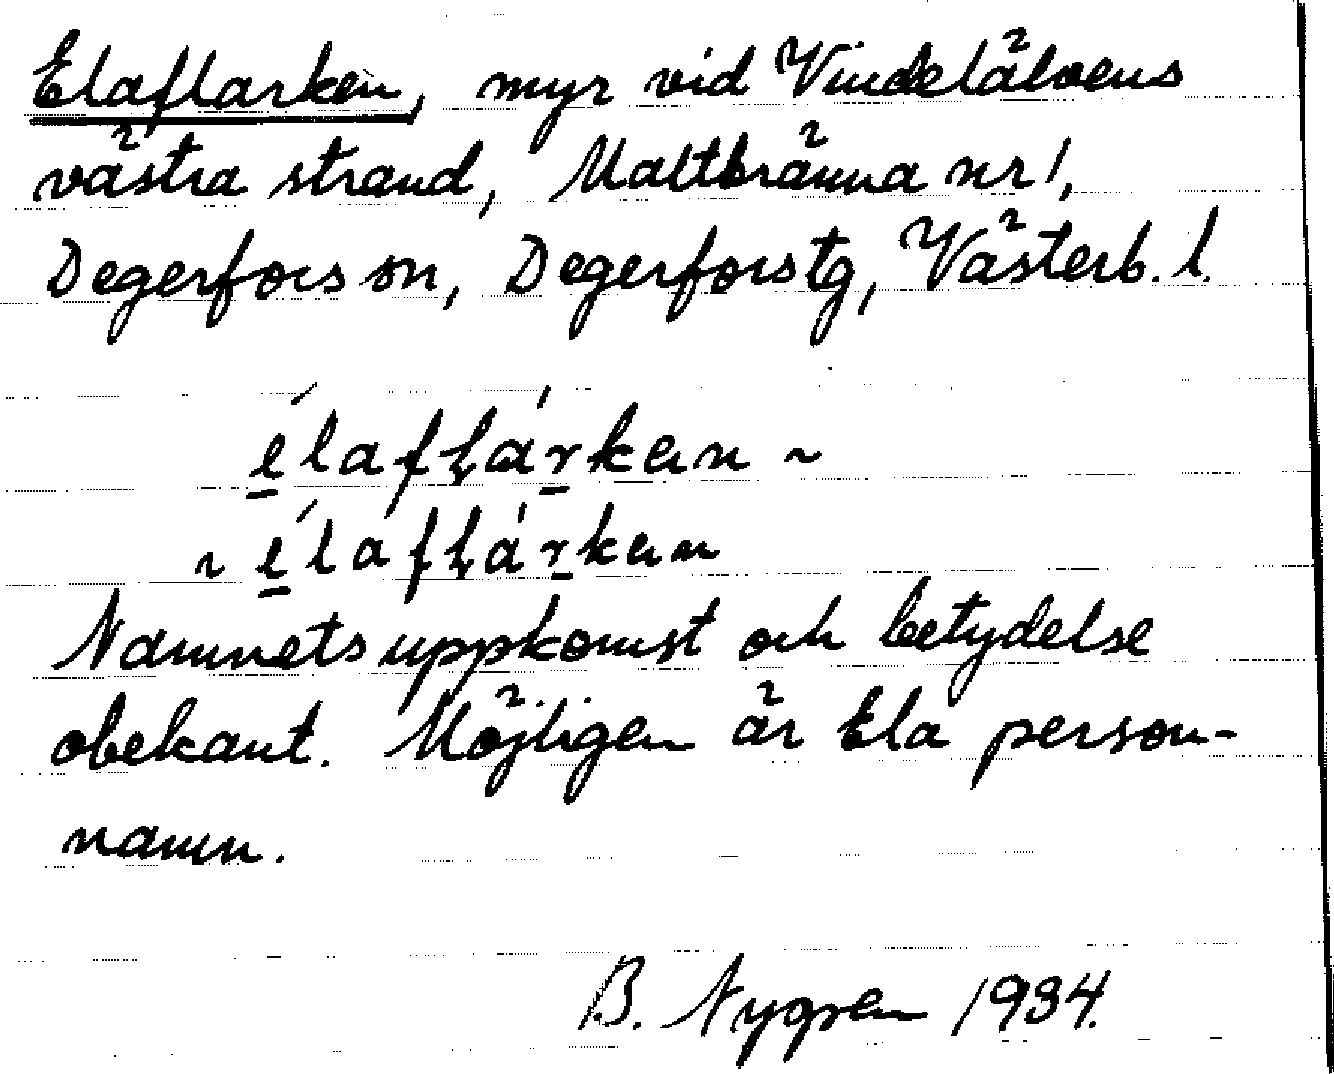 Elaflarken, myr vid Vindelälvens
västra strand, Maltbränna nr 1,
Degerfors sn, Degerfors tg, Västerb. l.
élaflárkæn ~
~ élaflárkæn
Namnets uppkomst och betydelse
obekant. Möjligen är Ela person-
namn.
B. Nygren 1934.